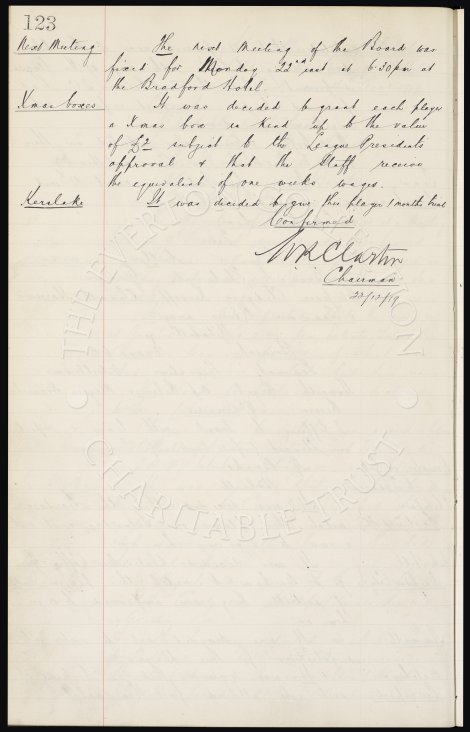 123
Next Meeting The next meeting of the Board was
fixed for Monday 22nd inst at 6.30pm at
the Bradford Hotel.
Xmas boxes It was decided to grant each player
a Xmas box in kind up to the value
of £2 subject to the League Presidents
approval & that the Staff receive
the equivalent of one weeks wages.
Kerslake It was decided to give this player 1 months trial
Confirmed
W R Clayton
Chairman
22/12/19
THE EVERTON COLLECTION
CHARITABLE TRUST